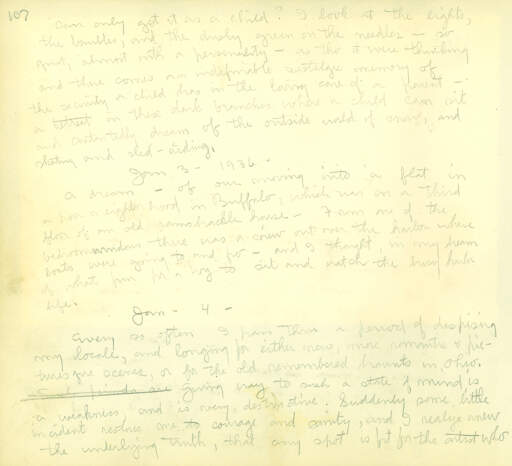 107
can only get it as a child? I look at the lights,
the baubles, and the dusky green on the needles — so
quiet, almost with a personality — as tho it were thinking
and there comes an indefinable nostalgic memory of
the security a child has in the loving care of a parent —
a retreat in these dark branches where a child can sit
and contentedly dream of the outside world of snow, and
skating and sled-riding.
Jan 3 - 1936 -
A dream — of our moving into a flat in
a poor neighborhood in Buffalo, which was on a third
floor of an old ramshackle house — From one of the
bedroom windows there was a view out over the harbor where
boats were going to and fro — and I thought, in my dream
of what fun for a boy to sit and watch the busy harbor
life.
Jan - 4 -
Every so often I pass thru a period of despising
my locale, and longing for either new, more romantic & pic-
turesque scenes, or for the old remembered haunts in Ohio.
giving way to such a state of mind is
a weakness, and is very destructive. Suddenly some little
incident restores me to courage and sanity, and I realize anew
the underlying truth, that any spot is fit for the artist who